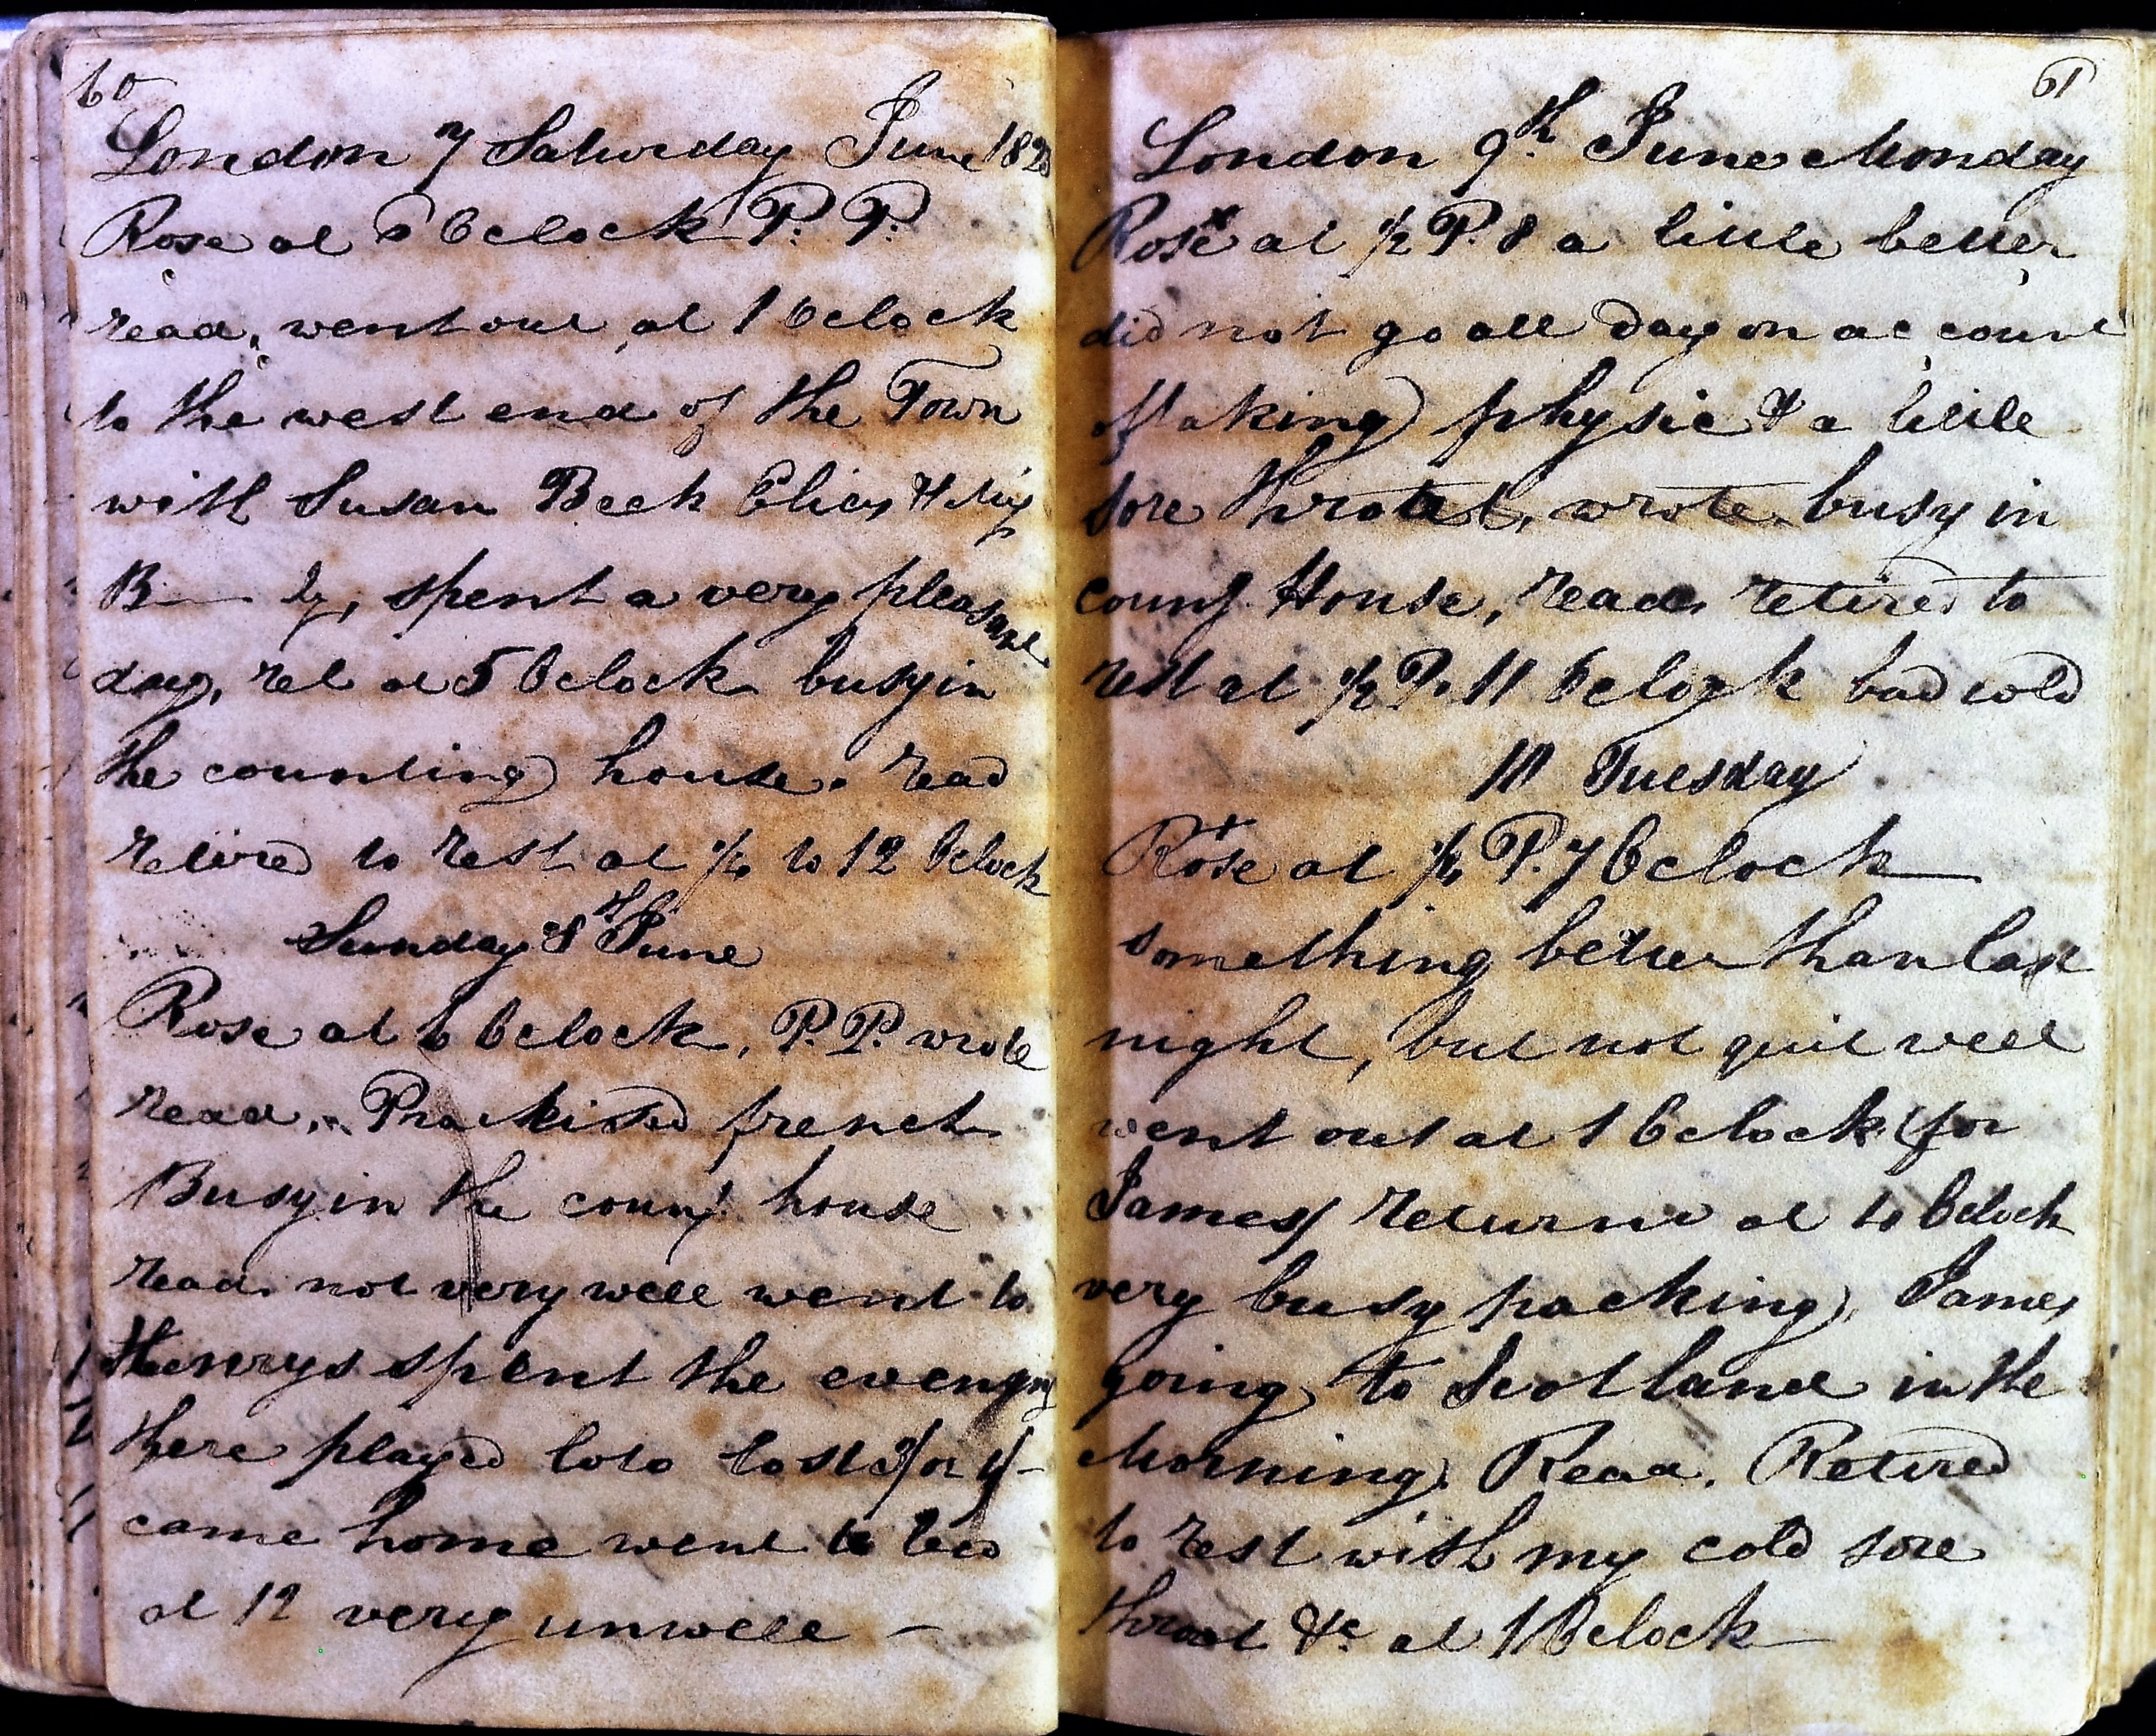 60
London 7 Saturday June 1828
Rose at 6 Oclock P. P.
read, went out at 1 Oclock
to the west end of the Town
with Susan Beck Elias & Miss
B—ly, spent a very pleasant
day, ret at 5 Oclock busy in
the counting house. read
retired to rest at 1/4 to 12 Oclock
Sunday 8th June
Rose at 6 Oclock, P. P. wrote
read, Practised french
Busy in the countg house
read. not very well went to
Henrys spent the evening
there played loto lost 3/ or 4/-
came home went to bed
at 12 very unwell —
61
London 9th June Monday
Rose at 1/2 P. 8 a little better
did not go all day on account
of taking physic & a little
sore throat, wrote. busy in
countg House, read. retired to
rest at 1/2 P. 11 Oclock bad cold
10 Tuesday
Rose at 1/4 P. 7 Oclock
something better than last
night, but not quit well
went out at 1 Oclock (for
James) returnd at 4 Oclock
very busy packing, James
going to Scotland in the
Morning. Read. Retired
to rest with my cold sore
throat &c at 1 Oclock